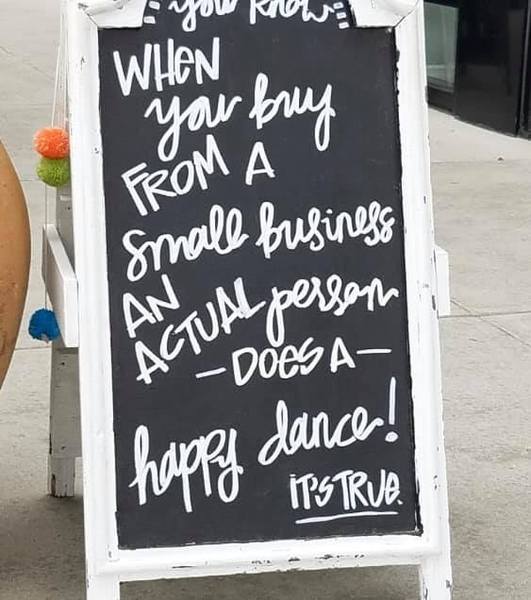 you know
WHEN
you buy
FROM A
small business
AN
ACTUAL person
—DOES A—
happy dance!
IT'S TRUE.